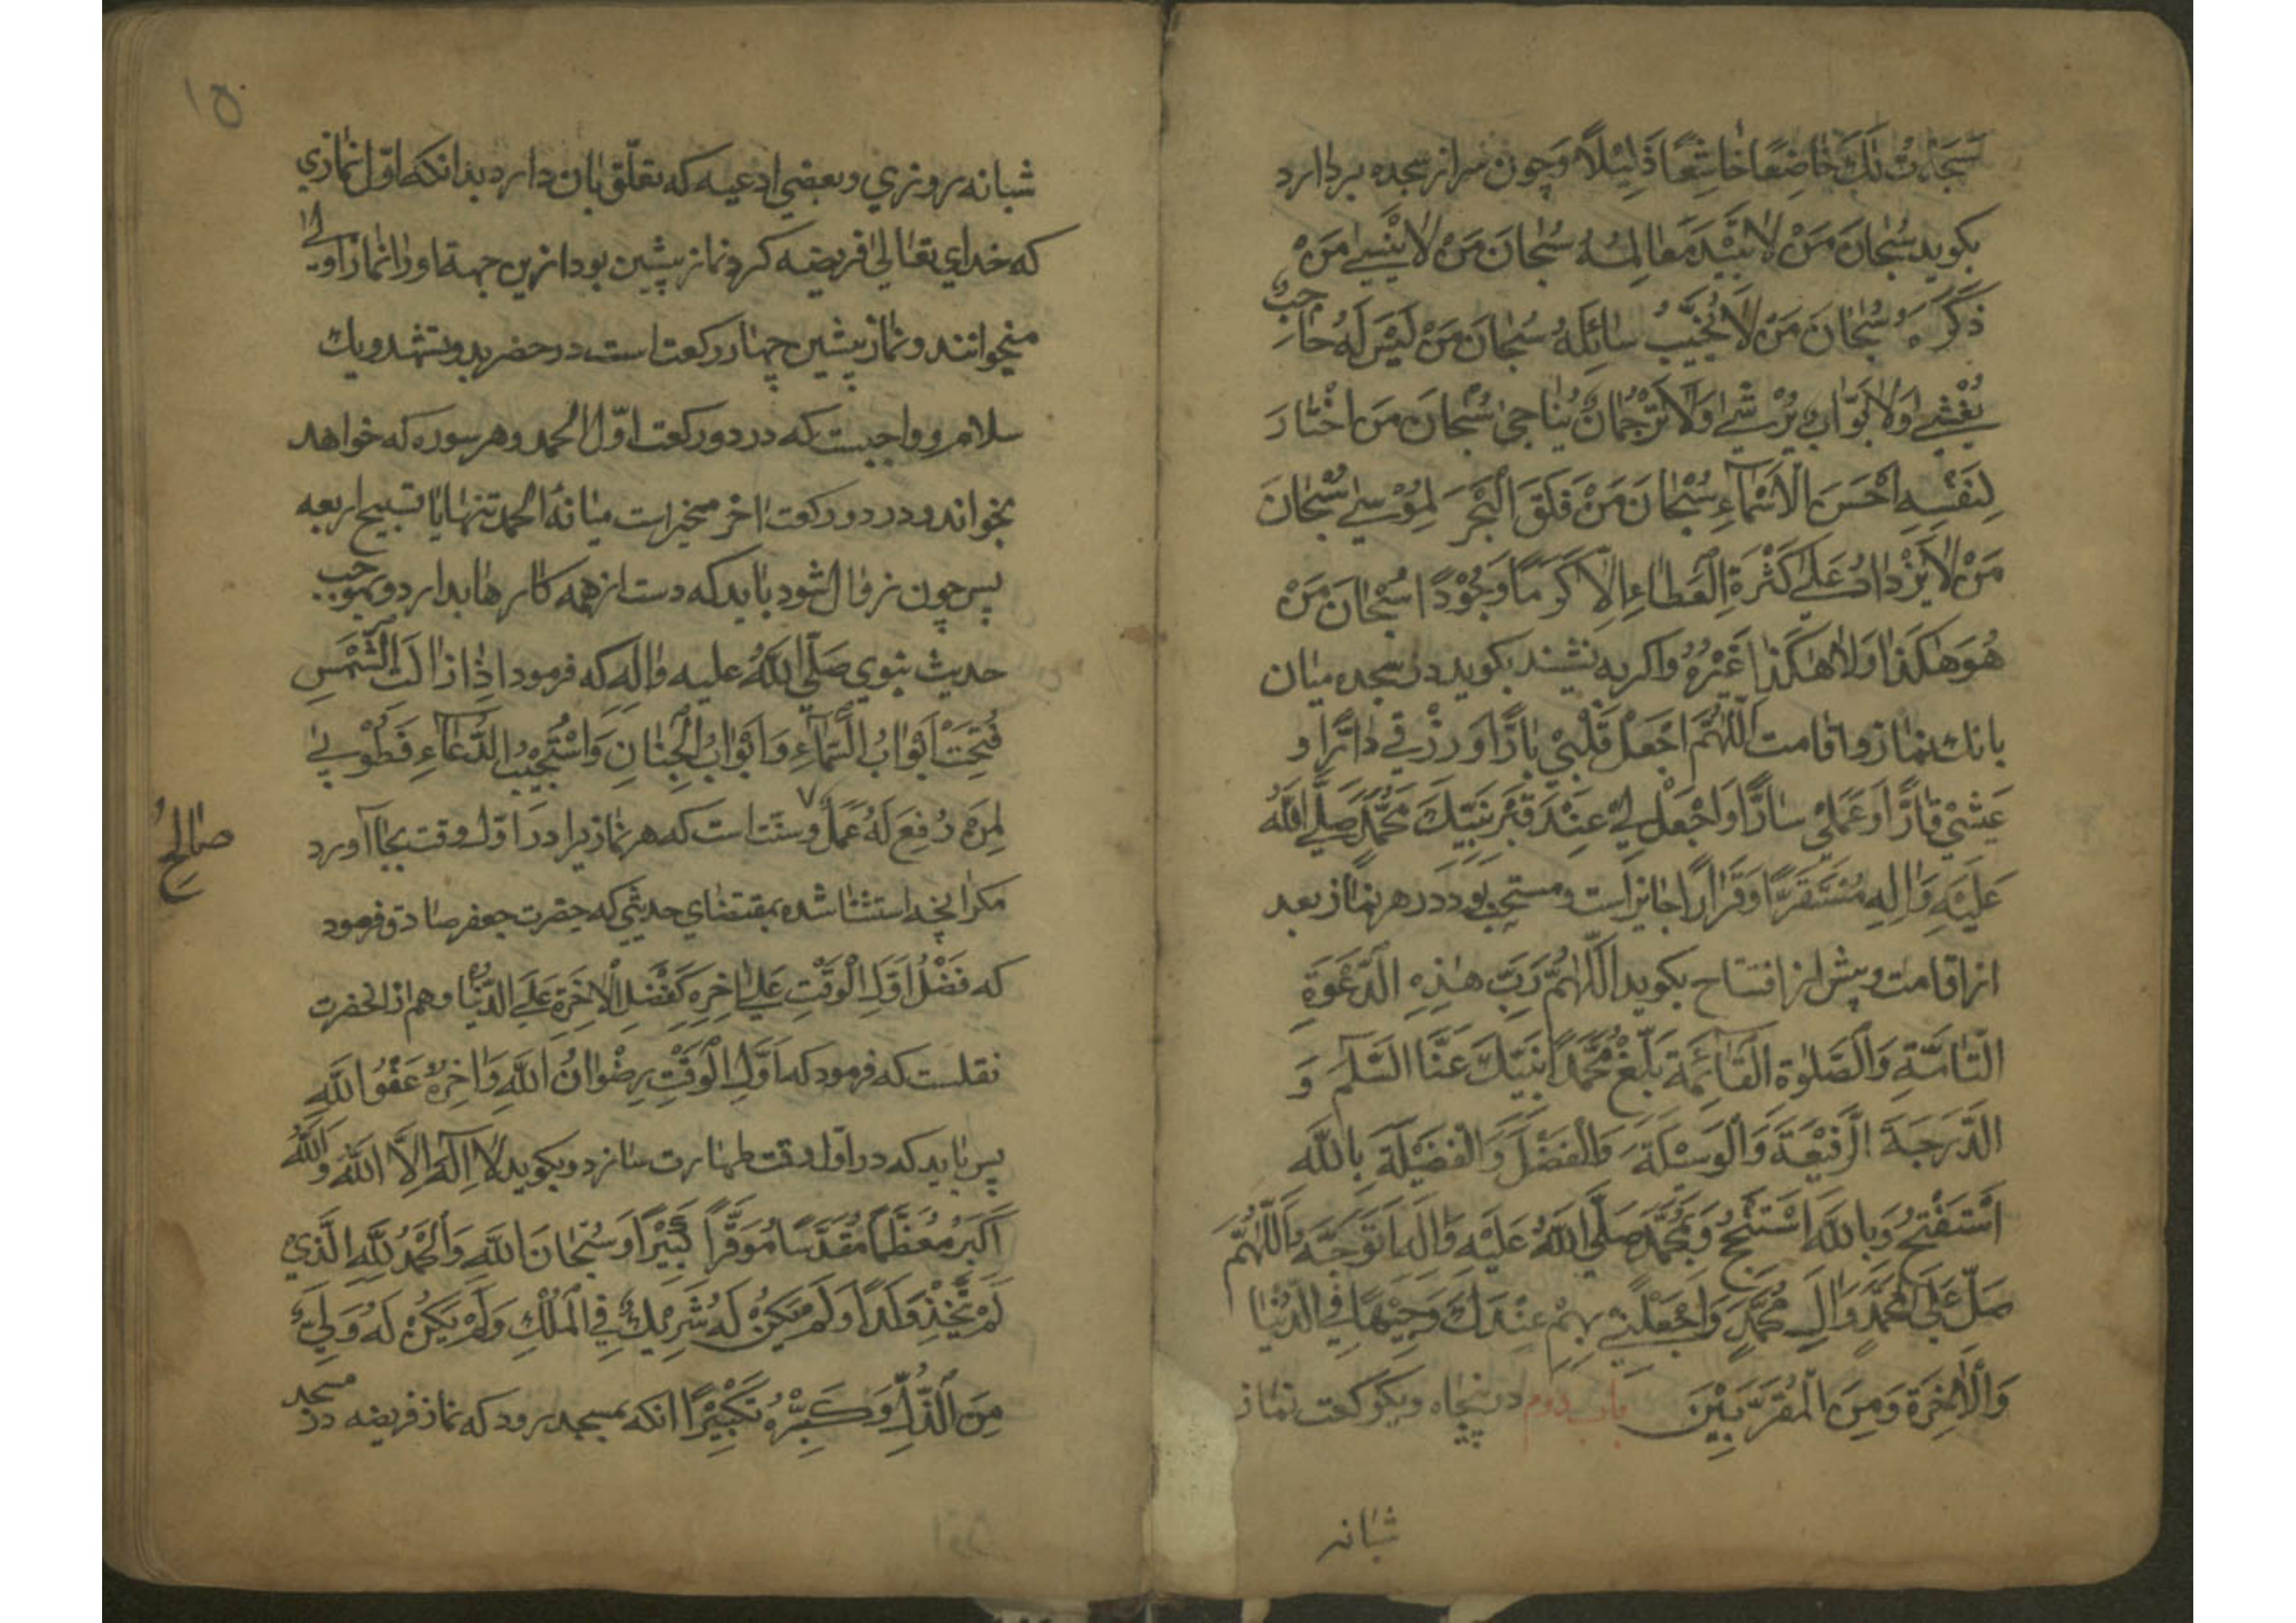 سَجَدْتُ لَكَ خَاضِعًا خَاشِعًا ذَلِيْلًا وچون سر از سجده بردارد
بكويد سُبْحَانَ مَنْ لَا تَبِيْدُ مَعَالِمُهُ سُبْحَانَ مَنْ لَا يَنْسَى مَنْ
ذَكَرَهُ سُبْحَانَ مَنْ لَا يُخَيِّبُ سَائِلَهُ سُبْحَانَ مَنْ لَيْسَ لَهُ حَاجِبٌ
يُغْشَى وَلَا بَوَّابٌ يُرْشَى وَلَا تَرْجُمَانٌ يُنَاجَى سُبْحَانَ مَنِ اخْتَارَ
لِنَفْسِهِ اَحْسَنَ الْاَسْمَاءِ سُبْحَانَ مَنْ فَلَقَ الْبَحْرَ لِمُوْسَى سُبْحَانَ
مَنْ لَا يَزْدَادُ عَلَى كَثْرَةِ الْعَطَاءِ اِلَّا كَرَمًا وَجُوْدًا سُبْحَانَ مَنْ
هُوَ هٰكَذَا وَلَا هٰكَذَا غَيْرُهُ واكر به نشيند بكويد در سجده ميان
بانك نماز واقامت اَللّٰهُمَّ اجْعَلْ قَلْبِيْ بَارًّا وَرِزْقِيْ دَارًّا و
عَيْشِيْ قَارًّا وَعَمَلِيْ سَارًّا وَاجْعَلْ لِيْ عِنْدَ قَبْرِ نَبِيِّكَ مُحَمَّدٍ صَلَّى اللّٰهُ
عَلَيْهِ وَاٰلِهِ مُسْتَقَرًّا وَقَرَارًا جايز است ومستحب بود در هر نماز بعد
از اقامت وپيش از افتتاح بكويد اَللّٰهُمَّ رَبَّ هٰذِهِ الدَّعْوَةِ
التَّامَّةِ وَالصَّلٰوةِ الْقَائِمَةِ بَلِّغْ مُحَمَّدًا نَبِيَّكَ عَنَّا السَّلٰمَ وَ
الدَّرَجَةَ الرَّفِيْعَةَ وَالْوَسِيْلَةَ وَالْفَضْلَ وَالْفَضِيْلَةَ بِاللّٰهِ
اَسْتَفْتِحُ وَبِاللّٰهِ اَسْتَنْجِحُ وَبِمُحَمَّدٍ صَلَّى اللّٰهُ عَلَيْهِ وَاٰلِهِ اَتَوَجَّهُ اَللّٰهُمَّ
صَلِّ عَلَى مُحَمَّدٍ وَاٰلِ مُحَمَّدٍ وَاجْعَلْنِيْ بِهِمْ عِنْدَكَ وَجِيْهًا فِي الدُّنْيَا
وَالْاٰخِرَةِ وَمِنَ الْمُقَرَّبِيْنَ باب دوم در پنجاه ويكركعت نماز
شبانه
۱۵
شبانه روزي وبعضي ادعيه كه تعلّق بان دارد بدانكه اوّل نمازي
كه خداي تعالى فريضه كرد نماز پيشين بود ازين جهة اورا نماز اولى
ميخوانند ونماز پيشين چهار ركعت است در حضر بدو تشهد ويك
سلام وواجبست كه در دو ركعت اوّل الحمد وهر سوره كه خواهد
بخواند ودر دو ركعت اخر مخير است ميانهٔ الحمد تنها يا تسبيح اربعه
پس چون زوال شود بايد كه دست از همه كارها بدارد وبموجب
حديث نبوي صَلَّى اللّٰهُ عليه واٰلِهِ كه فرمود اِذَا زَالَتِ الشَّمْسُ
فُتِحَتْ اَبْوَابُ السَّمَاءِ وَاَبْوَابُ الْجِنَانِ وَاسْتُجِيْبَ الدُّعَاءِ فَطُوْبى
لِمَنْ رُفِعَ لَهُ عَمَلٌ ٧ وسنّت است كه هر نماز يرا در اوّل وقت بجا آورد
صَالِحٌ
مكر انچه استثنا شده بمقتضاي حديثي كه حضرت جعفر صادق فرمود
كه فَضْلُ اَوَّلِ الْوَقْتِ عَلَى اٰخِرِهِ كَفَضْلِ الْاٰخِرَةِ عَلَى الدُّنْيَا وهم از انحضرت
نقلست كه فرمود كه اَوَّلُ الْوَقْتِ رِضْوَانُ اللّٰهِ وَاٰخِرُهُ عَفْوُ اللّٰهِ
پس بايد كه در اوّل وقت طهارت سازد وبكويد لَا اِلٰهَ اِلَّا اللّٰهُ وَاللّٰهُ
اَكْبَرُ مُعَظَّمًا مُقَدَّسًا مُوَقَّرًا كَبِيْرًا وَسُبْحَانَ اللّٰهِ وَالْحَمْدُ لِلّٰهِ الَّذِيْ
لَمْ يَتَّخِذْ وَلَدًا وَلَمْ يَكُنْ لَهُ شَرِيْكٌ فِي الْمُلْكِ وَلَمْ يَكُنْ لَهُ وَلِيٌّ
مِنَ الذُّلِّ وَكَبِّرْهُ تَكْبِيْرًا انكه بمسجد رود كه نماز فريضه در مسجد